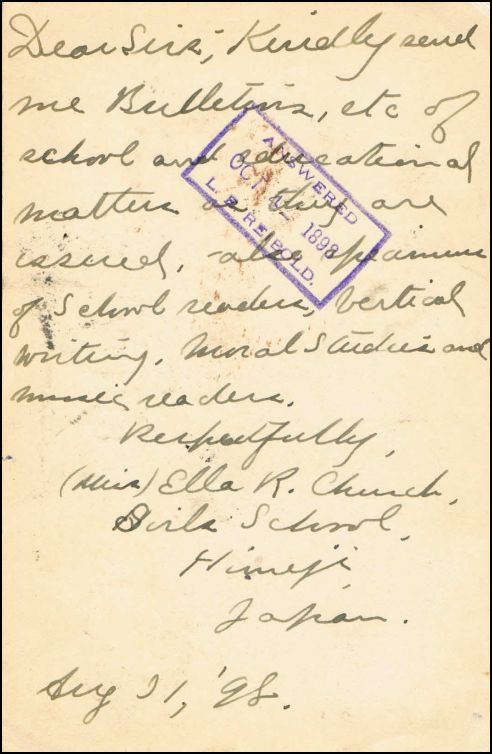 Dear Sirs; Kindly send
me Bulletins, etc of
school and educational
matters as they are
issued, also
of School readers, Vertical
writing, Moral Studies and
music readers.
Respectfully,
(Miss) Ella R. Church,
Girls School,
Himeji
Japan.
Aug 31, '98.
ANSWERED
OCT 1898
L. B. REIBOLD.